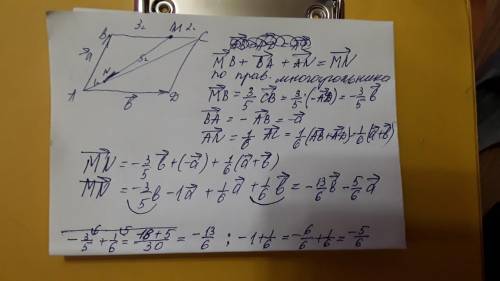 B 3x M 2x C
a 5x
x N
A b D
MB + BA + AN = MN
по прав. многоугольника
MB = 3/5 CB = 3/5 (-AD) = -3/5 b
BA = -AB = -a
AN = 1/6 AC = 1/6 (AB+AD) = 1/6 (a+b)
MN = -3/5 b + (-a) + 1/6 (a+b)
MN = -3/5 b - 1a + 1/6 a + 1/6 b = -13/6 b - 5/6 a
-3/5 + 1/6 = 18+5/30 = -13/6 ; -1 + 1/6 = -6/6 + 1/6 = -5/6